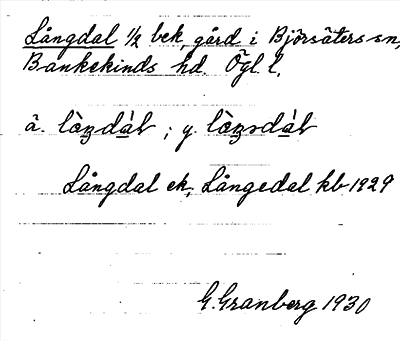 Långdal ½ bek. gård i Björsäters sn,
Bankekinds hd. Ögl. l.
ä. lòŋdál ; y. lòŋsdál
Långdal ek, Långedal kb 1929
G. Granberg 1930